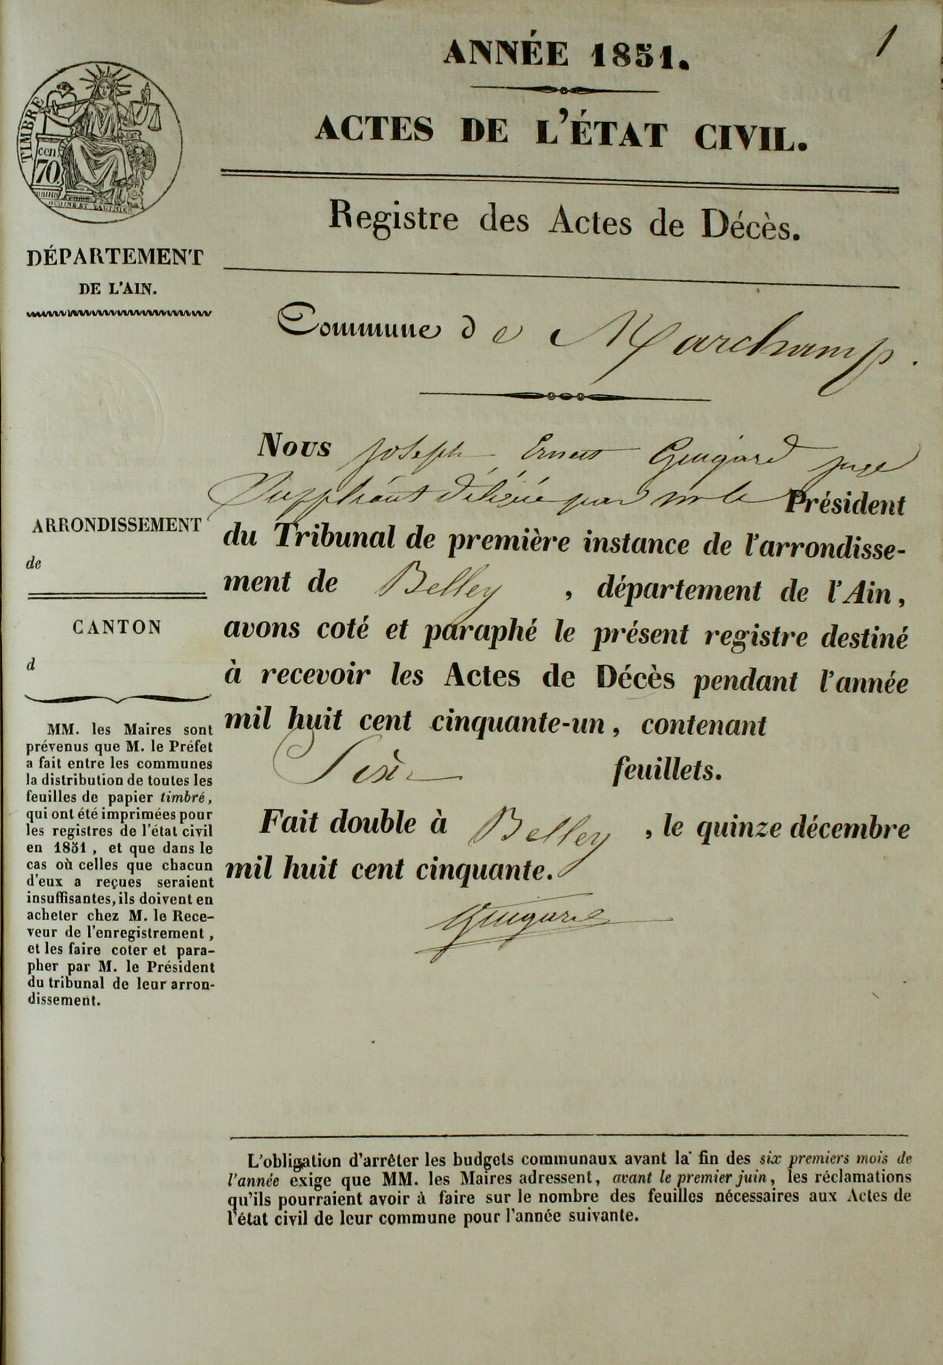 1
ANNÉE 1851.
ACTES DE L'ÉTAT CIVIL.
Registre des Actes de Décès.
TIMBRE
70
cen
DÉPARTEMENT
DE L'AIN.
Commune de Marchamp.
Nous Joseph Ernest Guigard juge
Suppléant délégué par mr le Président
du Tribunal de première instance de l'arrondisse-
ment de Belley, département de l'Ain,
avons coté et paraphé le présent registre destiné
à recevoir les Actes de Décès pendant l'année
mil huit cent cinquante-un, contenant
feuillets.
Fait double à Belley, le quinze décembre
mil huit cent cinquante.
Guigard
ARRONDISSEMENT
de
CANTON
d
MM. les Maires sont
prévenus que M. le Préfet
a fait entre les communes
la distribution de toutes les
feuilles de papier timbré,
qui ont été imprimées pour
les registres de l'état civil
en 1851, et que dans le
cas où celles que chacun
d'eux a reçues seraient
insuffisantes, ils doivent en
acheter chez M. le Rece-
veur de l'enregistrement,
et les faire coter et para-
pher par M. le Président
du tribunal de leur arron-
dissement.
L'obligation d'arrêter les budgets communaux avant la fin des six premiers mois de
l'année exige que MM. les Maires adressent, avant le premier juin, les réclamations
qu'ils pourraient avoir à faire sur le nombre des feuilles nécessaires aux Actes de
l'état civil de leur commune pour l'année suivante.